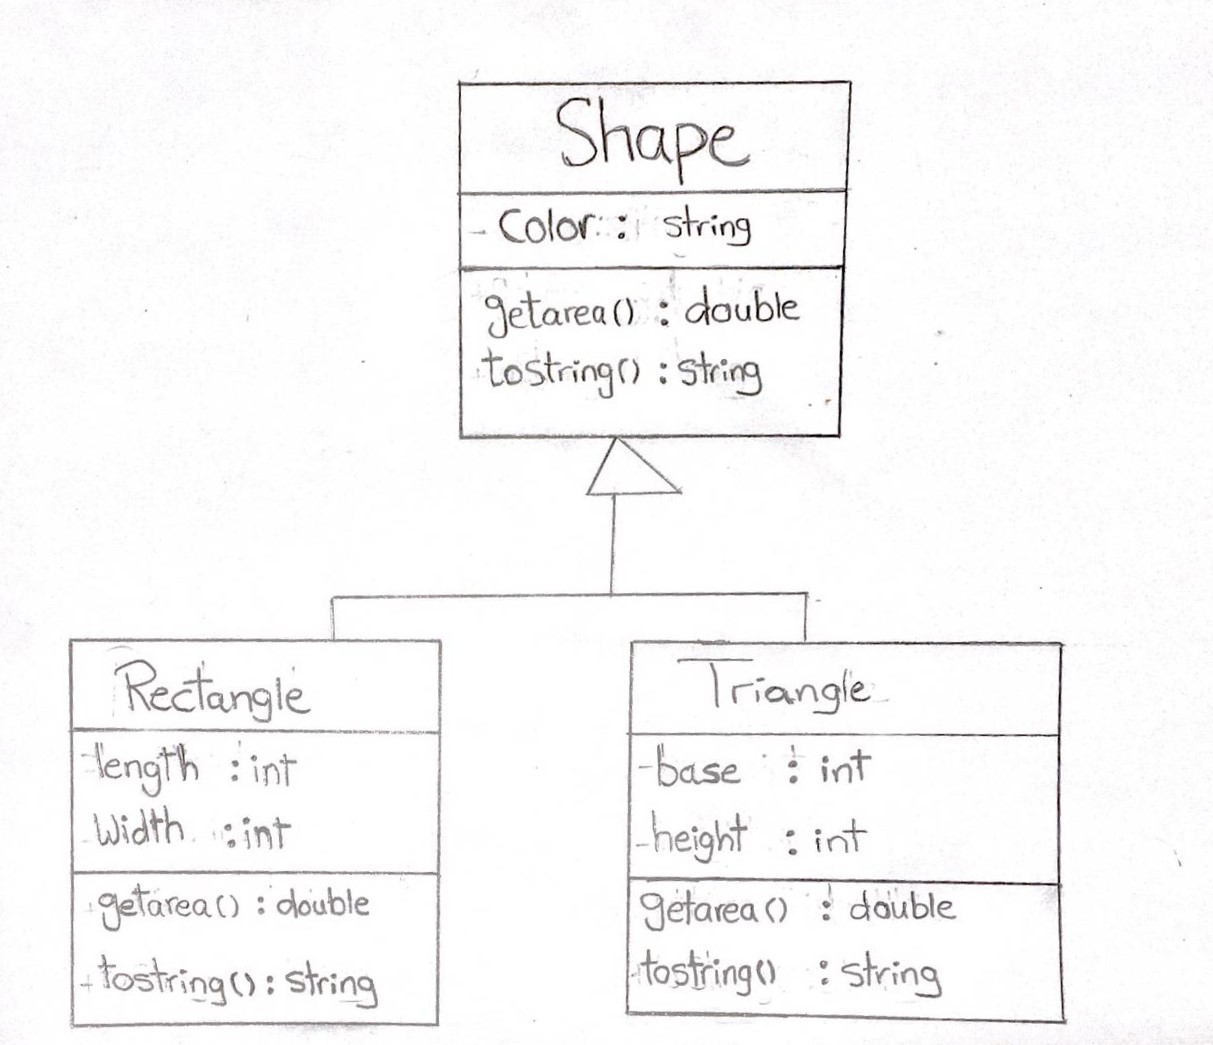 Shape
- Color : string
getarea() : double
tostring() : string
Rectangle
-length : int
-Width : int
getarea() : double
+tostring() : string
Triangle
-base : int
-height : int
getarea() : double
tostring() : string